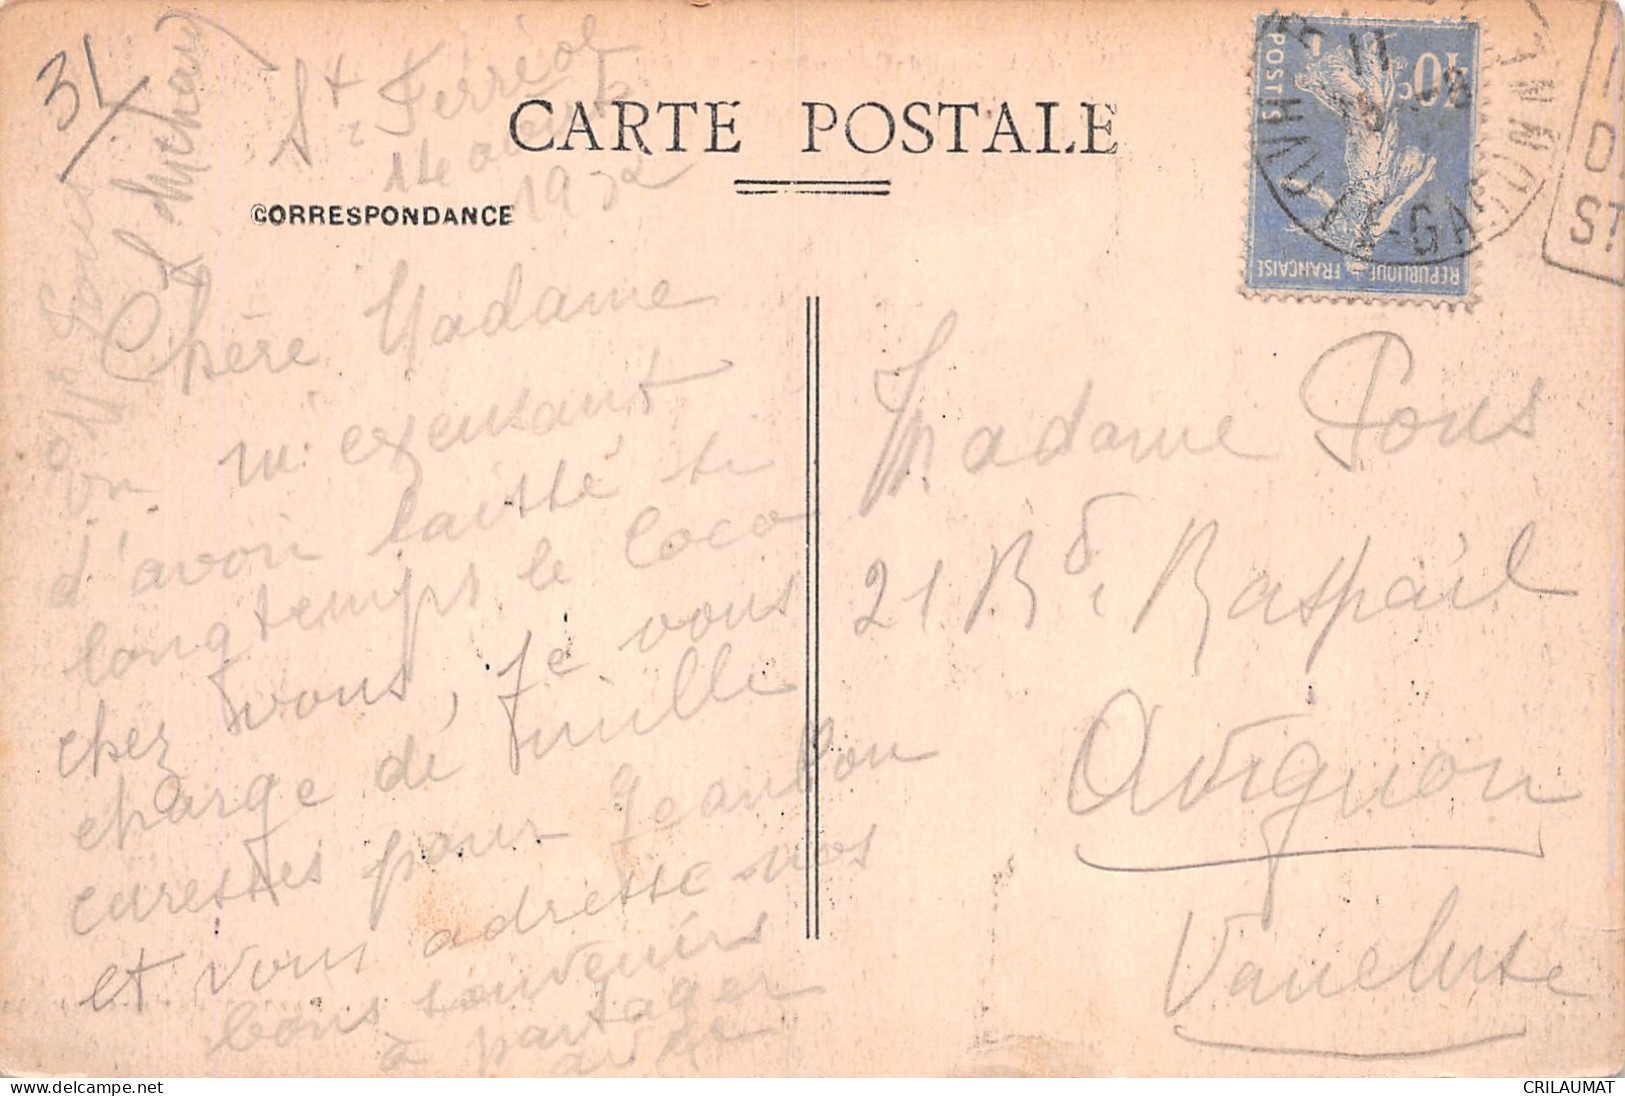 31
St Ferréol
14 août
1932
CARTE POSTALE
CORRESPONDANCE
Chère Madame
en m'excusant
d'avoir laissé si
longtemps le Coco
chez vous, je vous
charge de mille
caresses pour Jeanlou
et vous adresse nos
bons souvenirs
à partager
avec
Mr Pous
Michaud
40c
POSTES
REPUBLIQUE FRANÇAISE
HAUTE-GARONNE
Madame Pous
21 Bd Raspail
Avignon
Vaucluse
CRILAUMAT